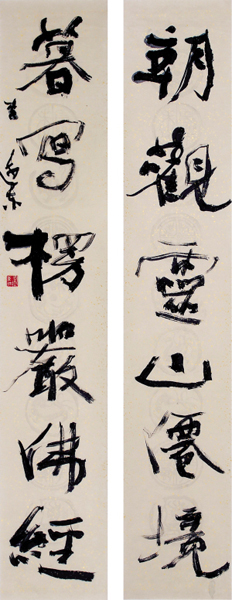 朝觀靈山僊境
暮寫楞嚴佛經